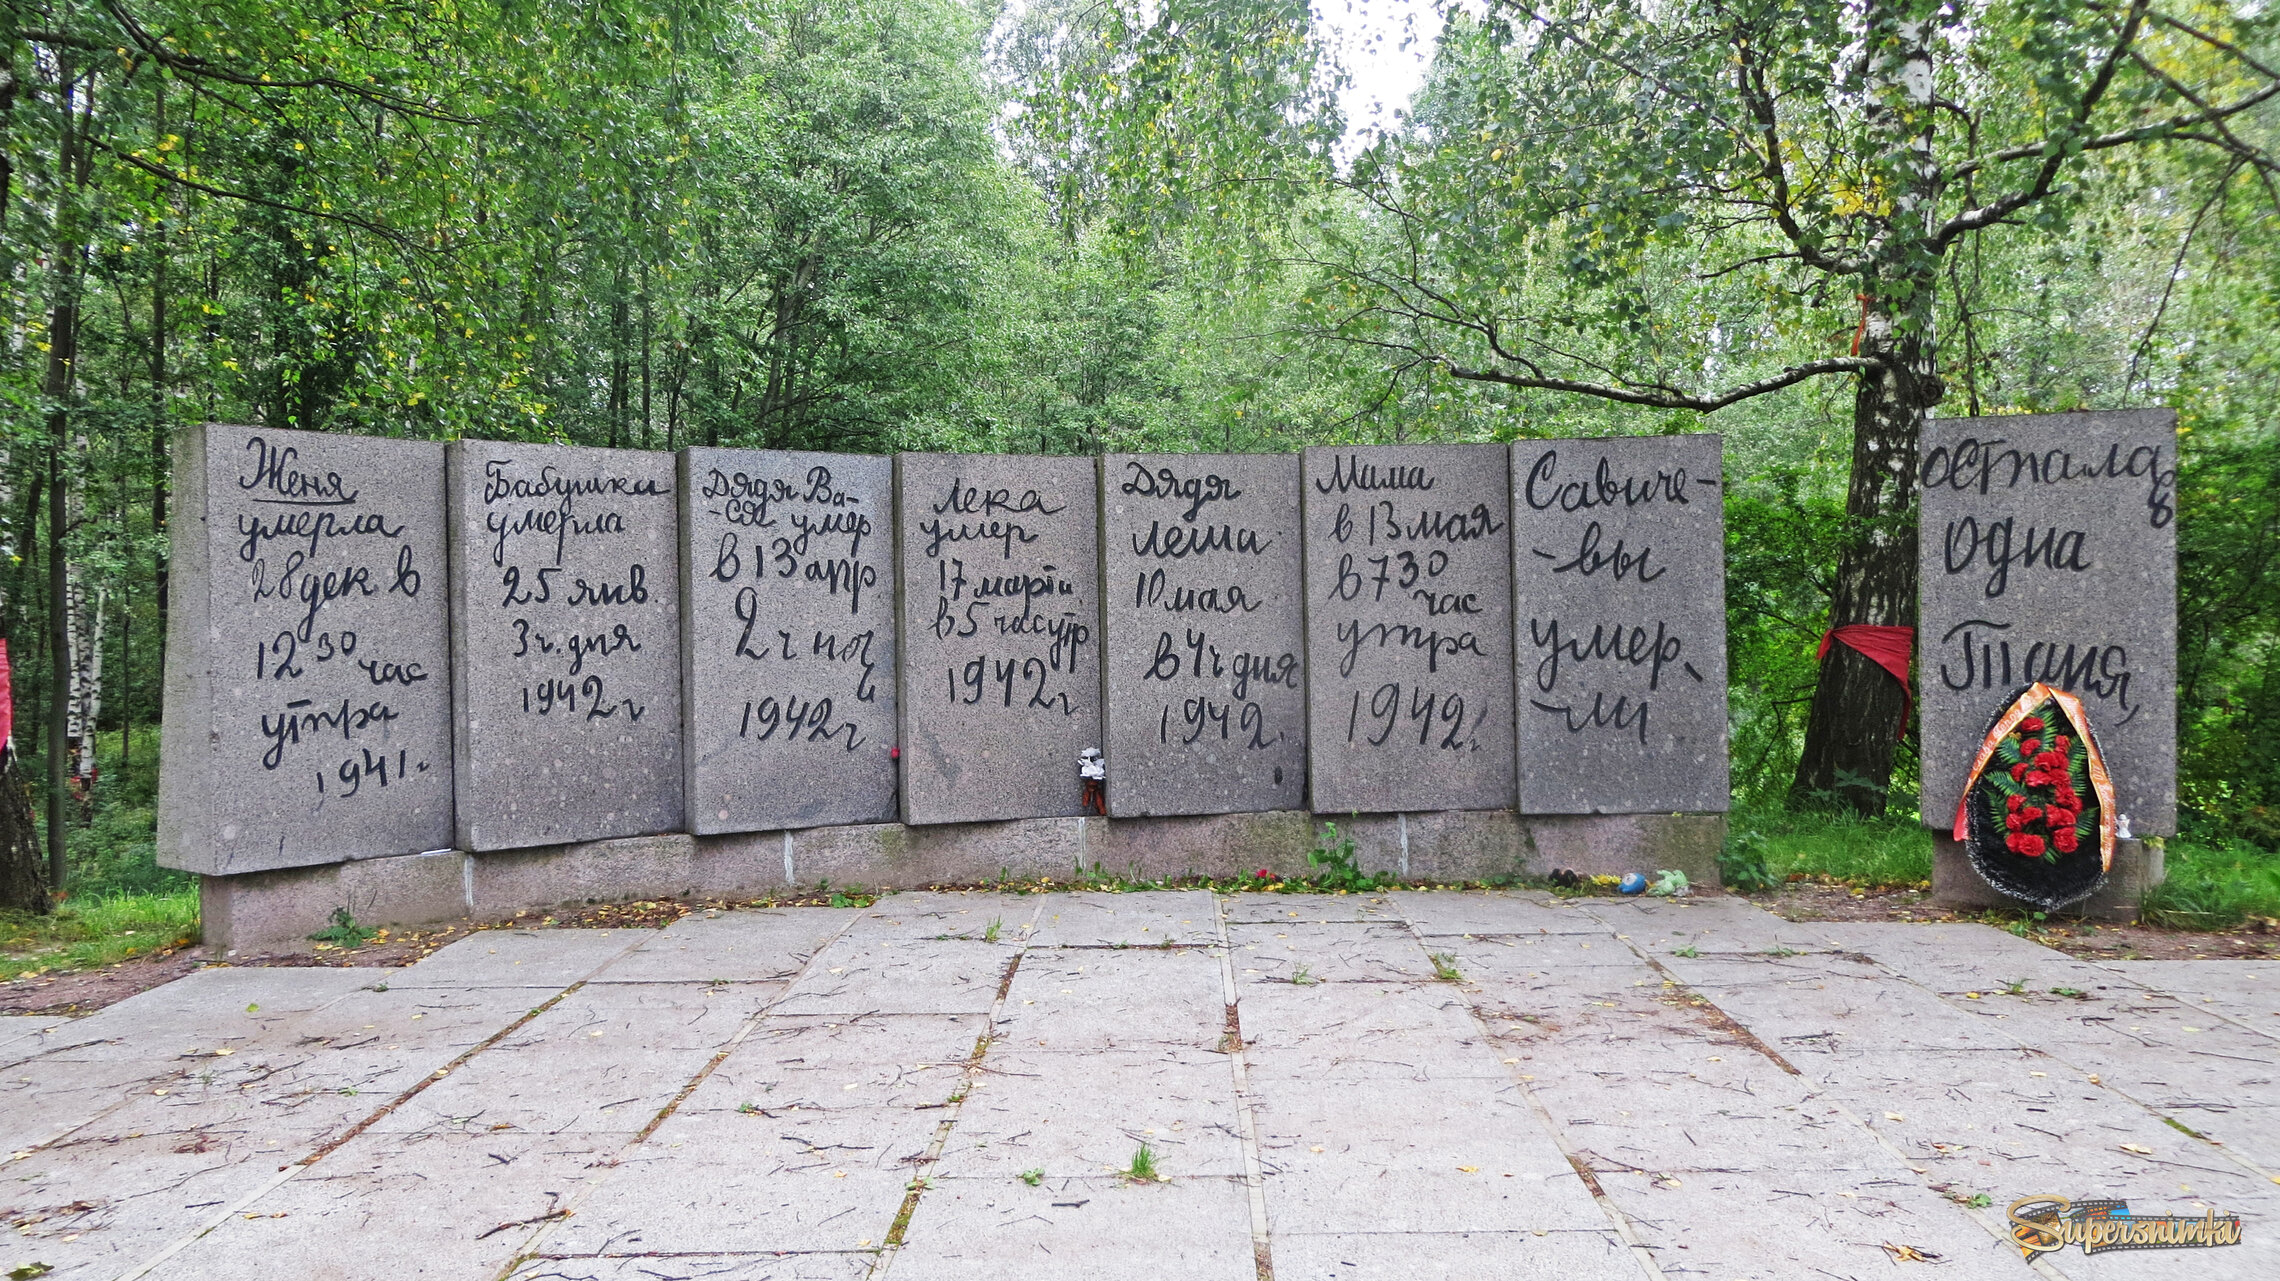 Женя
умерла
28 дек. в
12 30 час
утра
1941 г.
Бабушка
умерла
25 янв.
3 ч. дня
1942 г
Дядя Ва-
-ся умер
в 13 апр
2 ч ноч
и
1942 г
Лека
умер
17 марта
в 5 час утр
1942 г
Дядя
Леша
10 мая
в 4 ч дня
1942.
Мама
в 13 мая
в 7 30
час
утра
1942 г.
Савиче-
-вы
умер-
-ли
Осталась
одна
Таня
Supersnimki